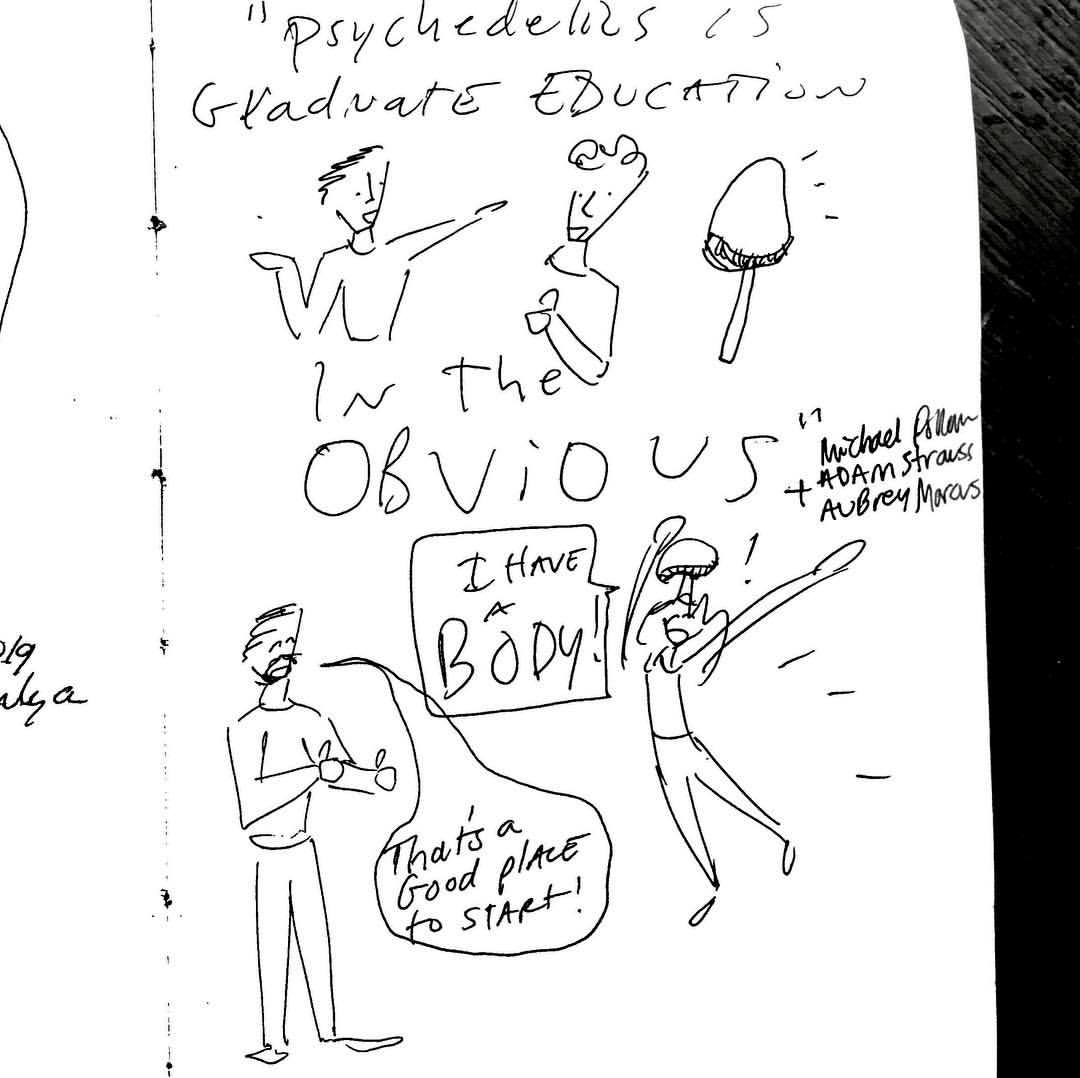 "psychedelics is
GRaduatE EDUCATiON
IN the
OBViOUS"
Michael Pollan
+ ADAM Strauss
AUBREY Marcus
I HAVE
A
BODY!
!
That's a
Good plACE
to START!
019